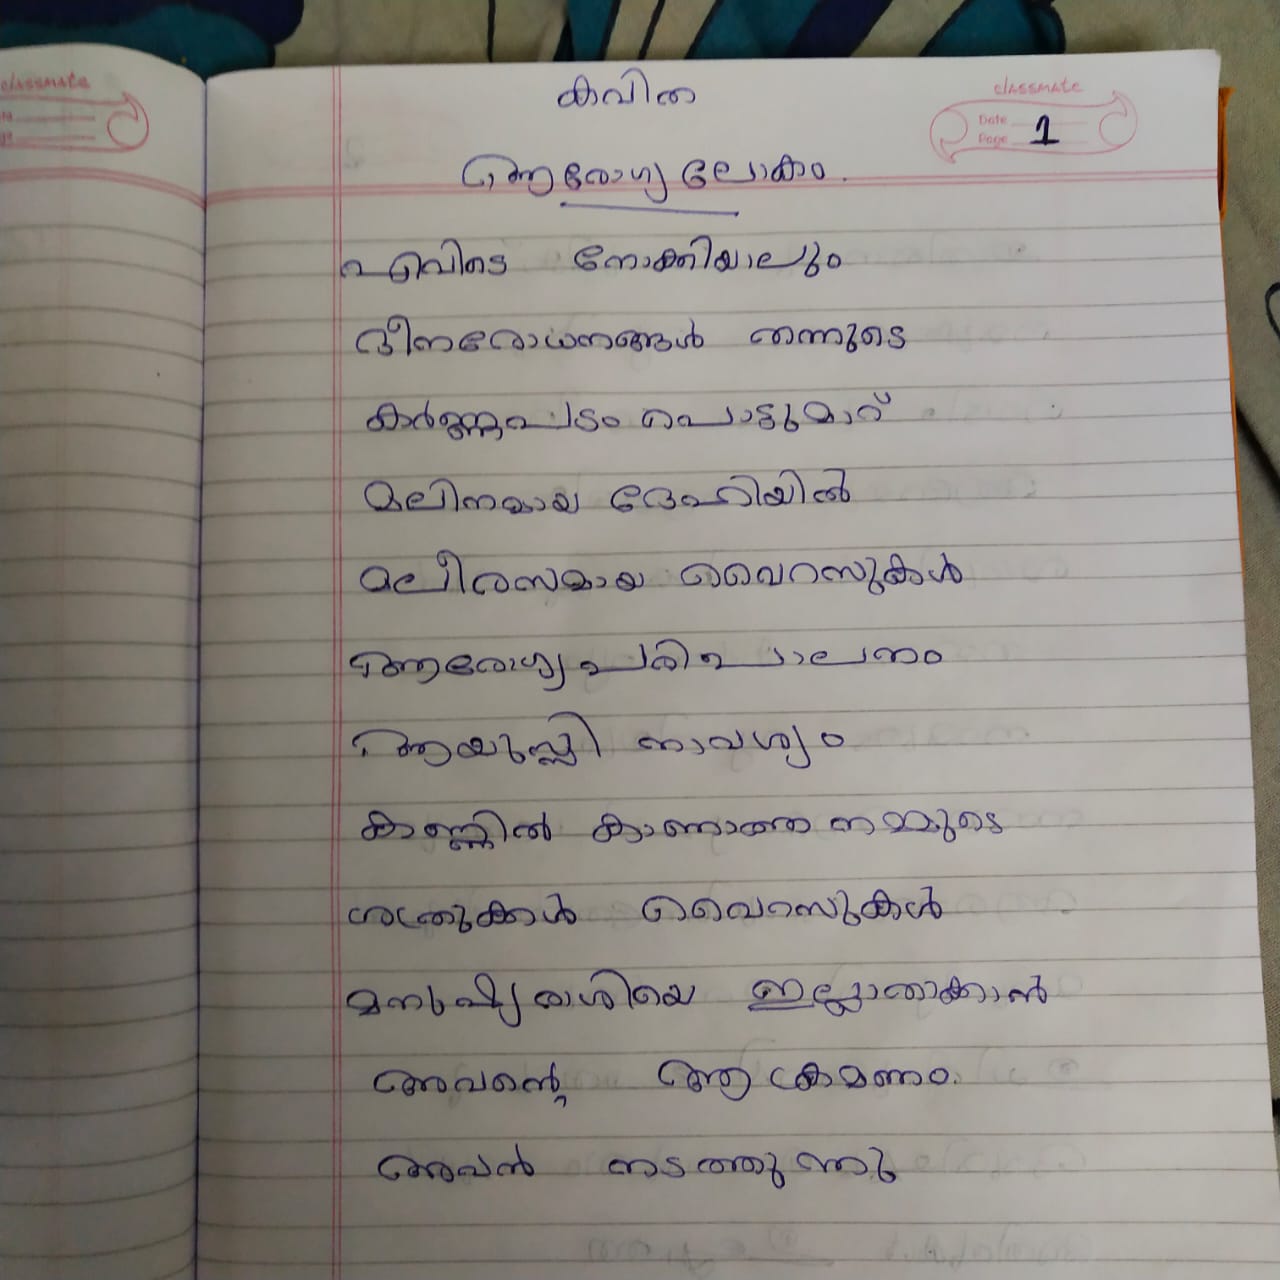 classmate
classmate
കവിത
Date
Page 1
ആരോഗ്യ ലോകം.
എവിടെ നോക്കിയാലും
ദീനരോധനങ്ങൾ തന്നുടെ
കർണ്ണപടം പൊട്ടുമാറ്
മലിനമായ ദേഹിയിൽ
മലീരസമായ വൈറസുകൾ
ആരോഗ്യപരിപാലനം
നാവശ്യം
കണ്ണിൽ കാണാത്ത നമ്മുടെ
ശത്രുക്കൾ വൈറസുകൾ
മനുഷ്യരാശിയെ ഇല്ലാതാക്കാൻ
അവന്റെ ആക്രമണം.
അവൻ നടത്തുന്നു